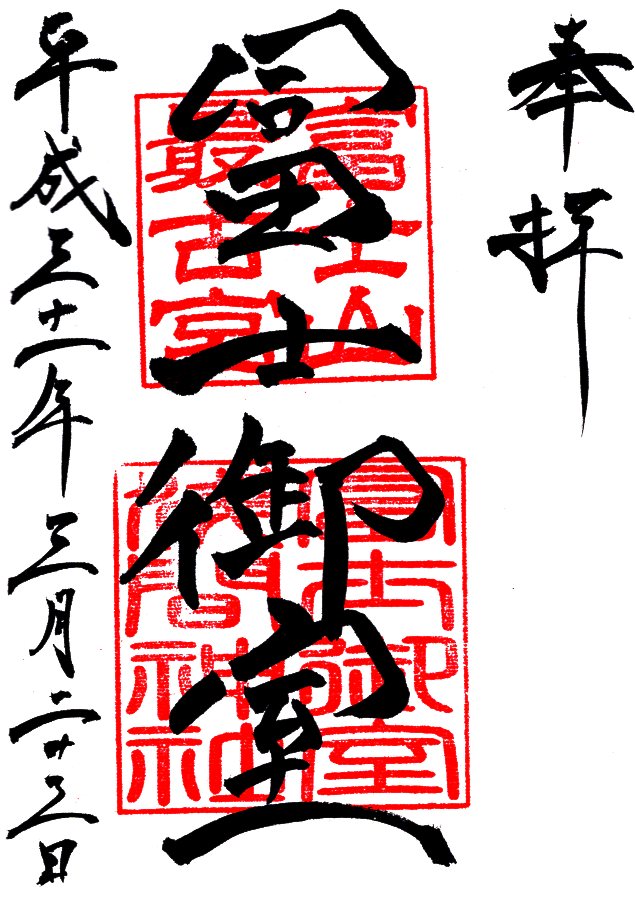 奉拝
冨士御室
富士山
最古宮
冨士御室
淺間神社
平成三十一年三月二十三日